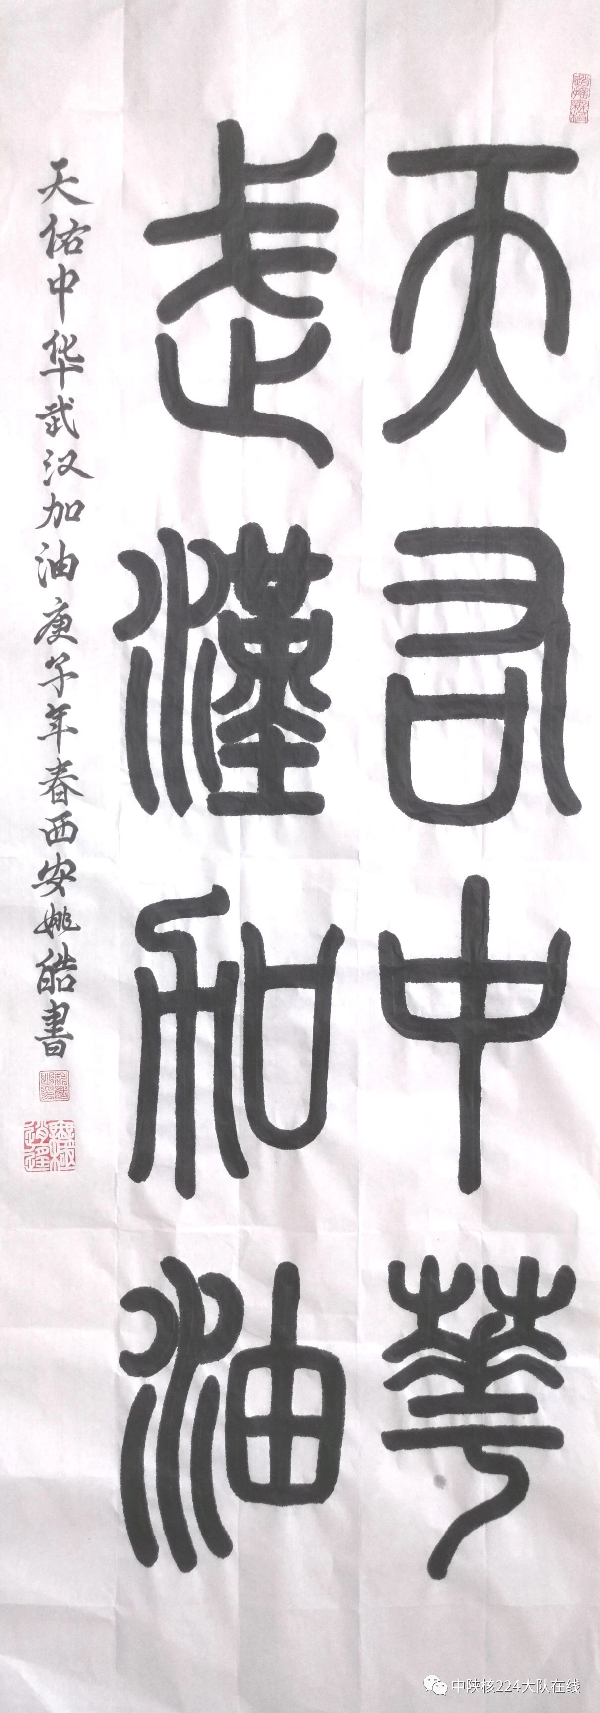 天右中華
武漢加油
天佑中华武汉加油庚子年春西安姚皓书
中陕核224大队在线